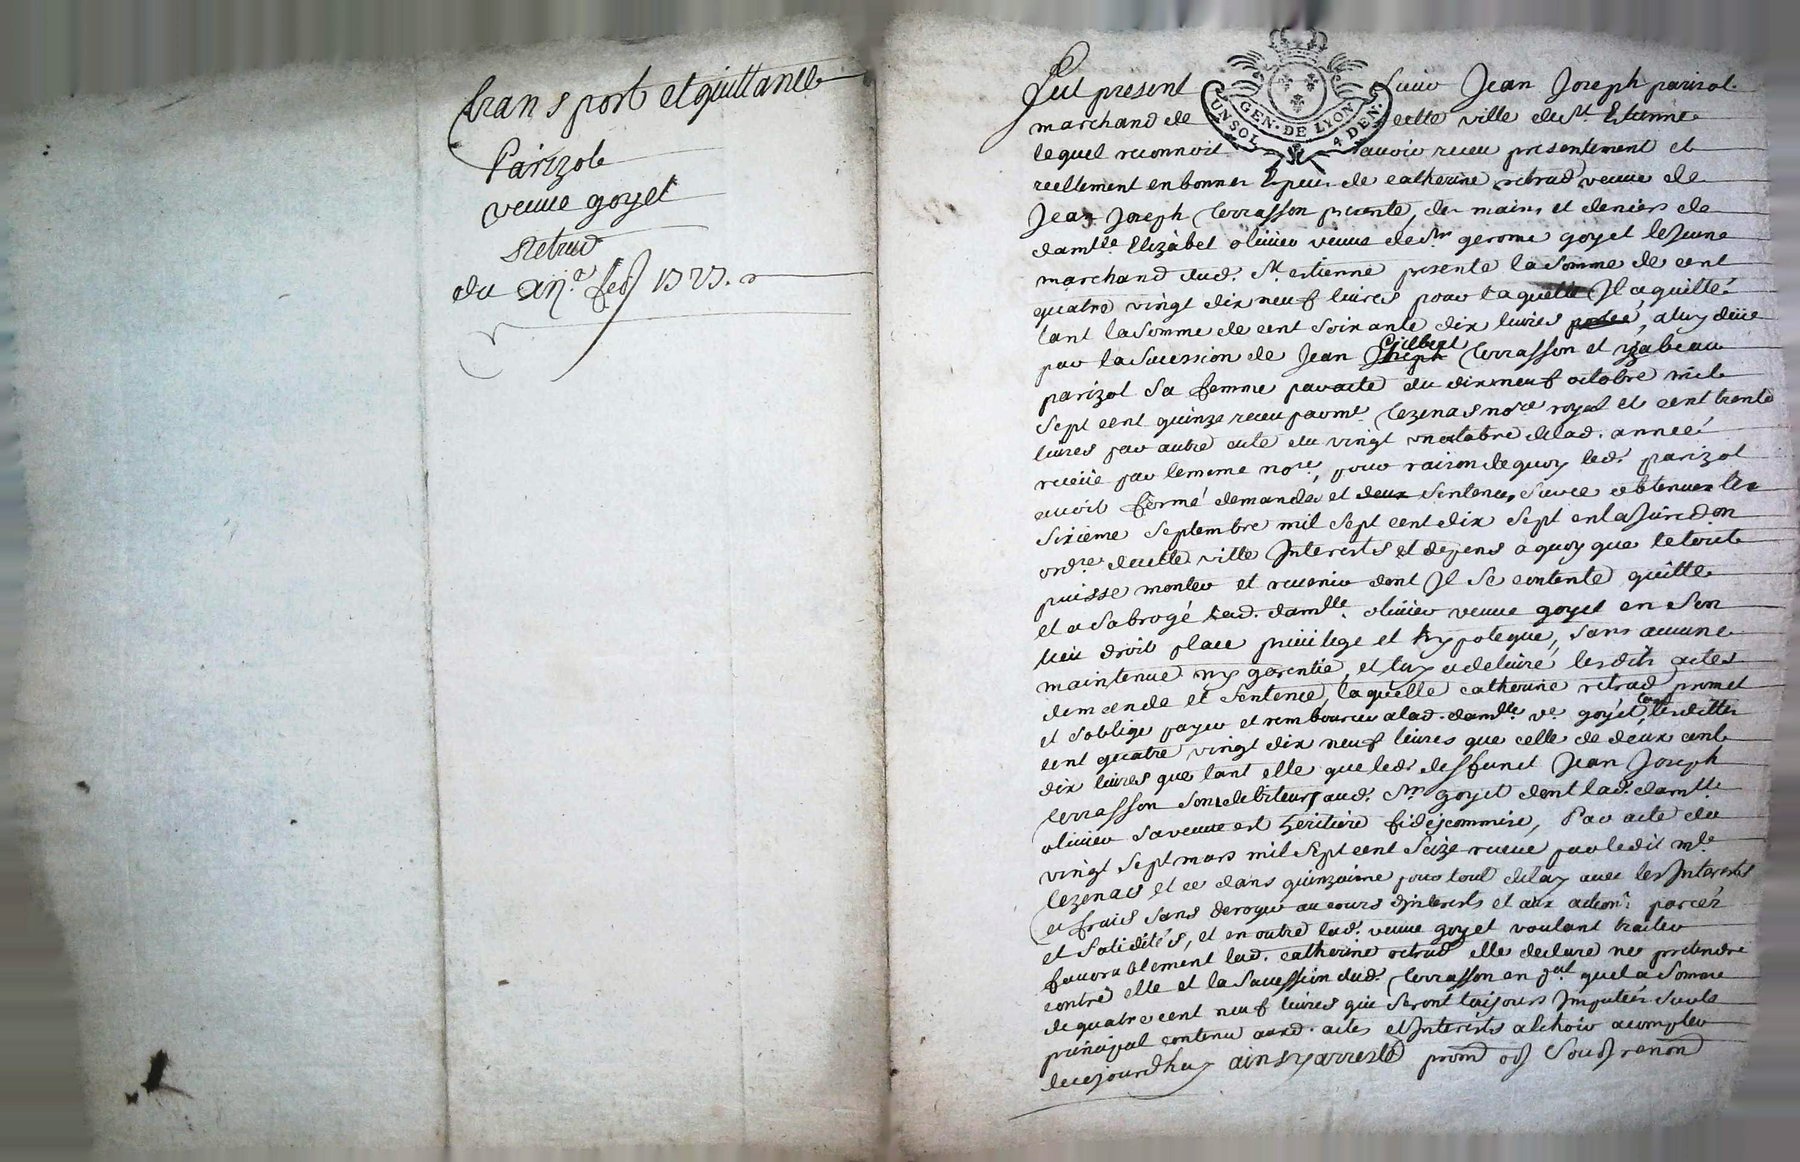 transport et quittance
Parizot
veuve goyet
Retrud
du xij.e feb 1727.
GEN. DE LYON
UN SOL 4 DEN.
fut present sieur Jean Joseph parizot
marchand de cette ville de st Etienne
lequel reconnoit avoir receu presentement et
reellement en bonnes Especes de catherine retrud veuve de
Jean Joseph terrasson presente, des mains et deniers de
damlle Elizabet olivier veuve de sr gerome goyet le Jeune
marchand dud. st estienne presente la somme de cent
quatre vingt dix neuf livres pour laquelle Il a quitté
tant la somme de cent soixante dix livres a luy deüe
par la sucession de Jean Gilbert terrasson et yzabeau
parizot sa femme par acte du dix neuf octobre mil
sept cent quinze receu par me tezenas nore royal et cent trente
livres par autre acte du vingt un octobre de lad. année
receüe par le meme nore, pour raison de quoy led. parizot
avoit formé demandes et sentences obtenues le
sixieme septembre mil sept cent dix sept en la Juredon
ordre de cette ville Interests et depens a quoy que le tout
puisse monter et revenir dont Il se contente quitte
et a sabrogé lad. damlle olivier veuve goyet en son
lieu droit place privilege et hypoteque, sans aucune
maintenue ny garentie, et luy a delivré lesdits actes
demande et sentence, laquelle catherine retrud promet
et soblige payer et rembourcer a lad. damlle ve goyet, tant lesdittes
cent quatre vingt dix neuf livres que celle de deux cent
dix livres que tant elle que led. deffunct Jean Joseph
terrasson sont debiteurs aud. sr goyet dont lad. damlle
olivier sa veuve est heritiere fideicommise, Par acte du
vingt sept mars mil sept cent seize receue par ledit me
tezenas et ce dans quinzaine pour tout delay avec les Interests
et frais sans deroger au cours d'interests et aux actions parcés
et solidités, et en outre lad. veuve goyet voulant traiter
favorablement lad. catherine retrud elle declare ne pretendre
contre elle et la sucession dud. terrasson en pal que la somme
de quatre cent neuf livres qui seront toujours Imputés sur le
principal contenu auxd. actes et Interests a echoir a compter
de cejourdhuy ainsy arresté prom obl soub renon